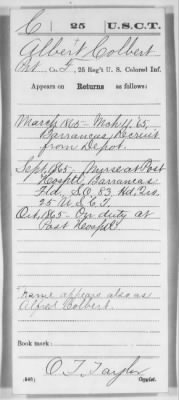 C | 25 | U.S.C.T.
Albert Colbert
Pvt, Co. F, 25 Reg't U. S. Colored Inf.
Appears on Returns as follows:
March 1865 - Mch 11/65,
Barrancas, Recruit
from Depot.
Sept. 1865 - Nurse at Post
Hospttl, Barrancas
Fla., S.O. 53. Hd. Qrs.
25 U.S.C.T.
Oct. 1865 - On duty at
Post Hosptl
Name appears also as
Alfred Colbert.
Book mark:
O. T. Taylor
(546) Copyist.